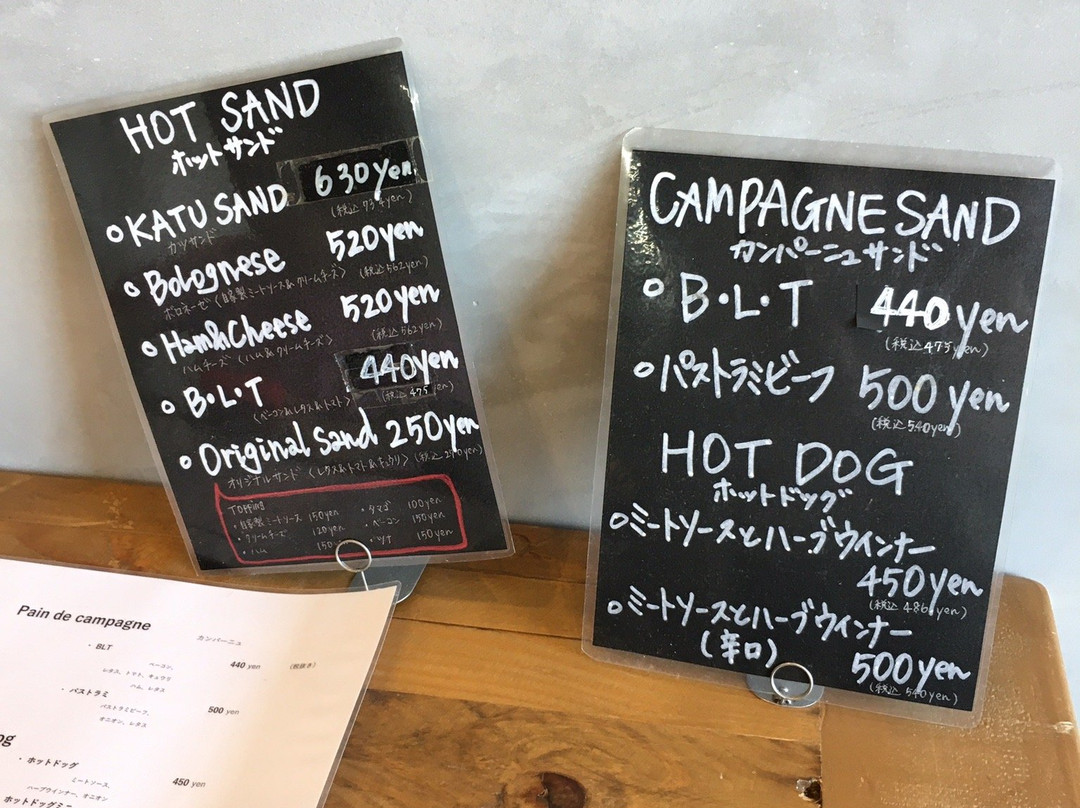 HOT SAND
ホットサンド
○KATU SAND 630yen
カツサンド
○Bolognese 520yen
ボロネーゼ〈自家製ミートソース&クリームチーズ〉(税込562yen)
○Ham&Cheese 520yen
ハムチーズ〈ハム&クリームチーズ〉(税込562yen)
○B・L・T 440yen
〈ベーコン&レタス&トマト〉(税込475yen)
○Original Sand 250yen
オリジナルサンド〈レタス&トマト&キュウリ〉
Topping
・自家製ミートソース 150yen
・クリームチーズ 120yen
・ハム 150
・タマゴ 100yen
・ベーコン 150yen
・ツナ 150yen
CAMPAGNE SAND
カンパーニュサンド
○B・L・T 440yen
(税込475yen)
○パストラミビーフ 500yen
(税込540yen)
HOT DOG
ホットドッグ
○ミートソースとハーブウインナー
450yen
(税込486yen)
○ミートソースとハーブウインナー
(辛口) 500yen
(税込540yen)
Pain de campagne カンパーニュ
・BLT 440 yen (税抜き)
ベーコン、
レタス、トマト、キュウリ
ハム、レタス
・パストラミ 500 yen
パストラミビーフ、
オニオン、レタス
og
・ホットドッグ 450 yen
ミートソース、
ハーブウインナー、オニオン
ホットドッグミー